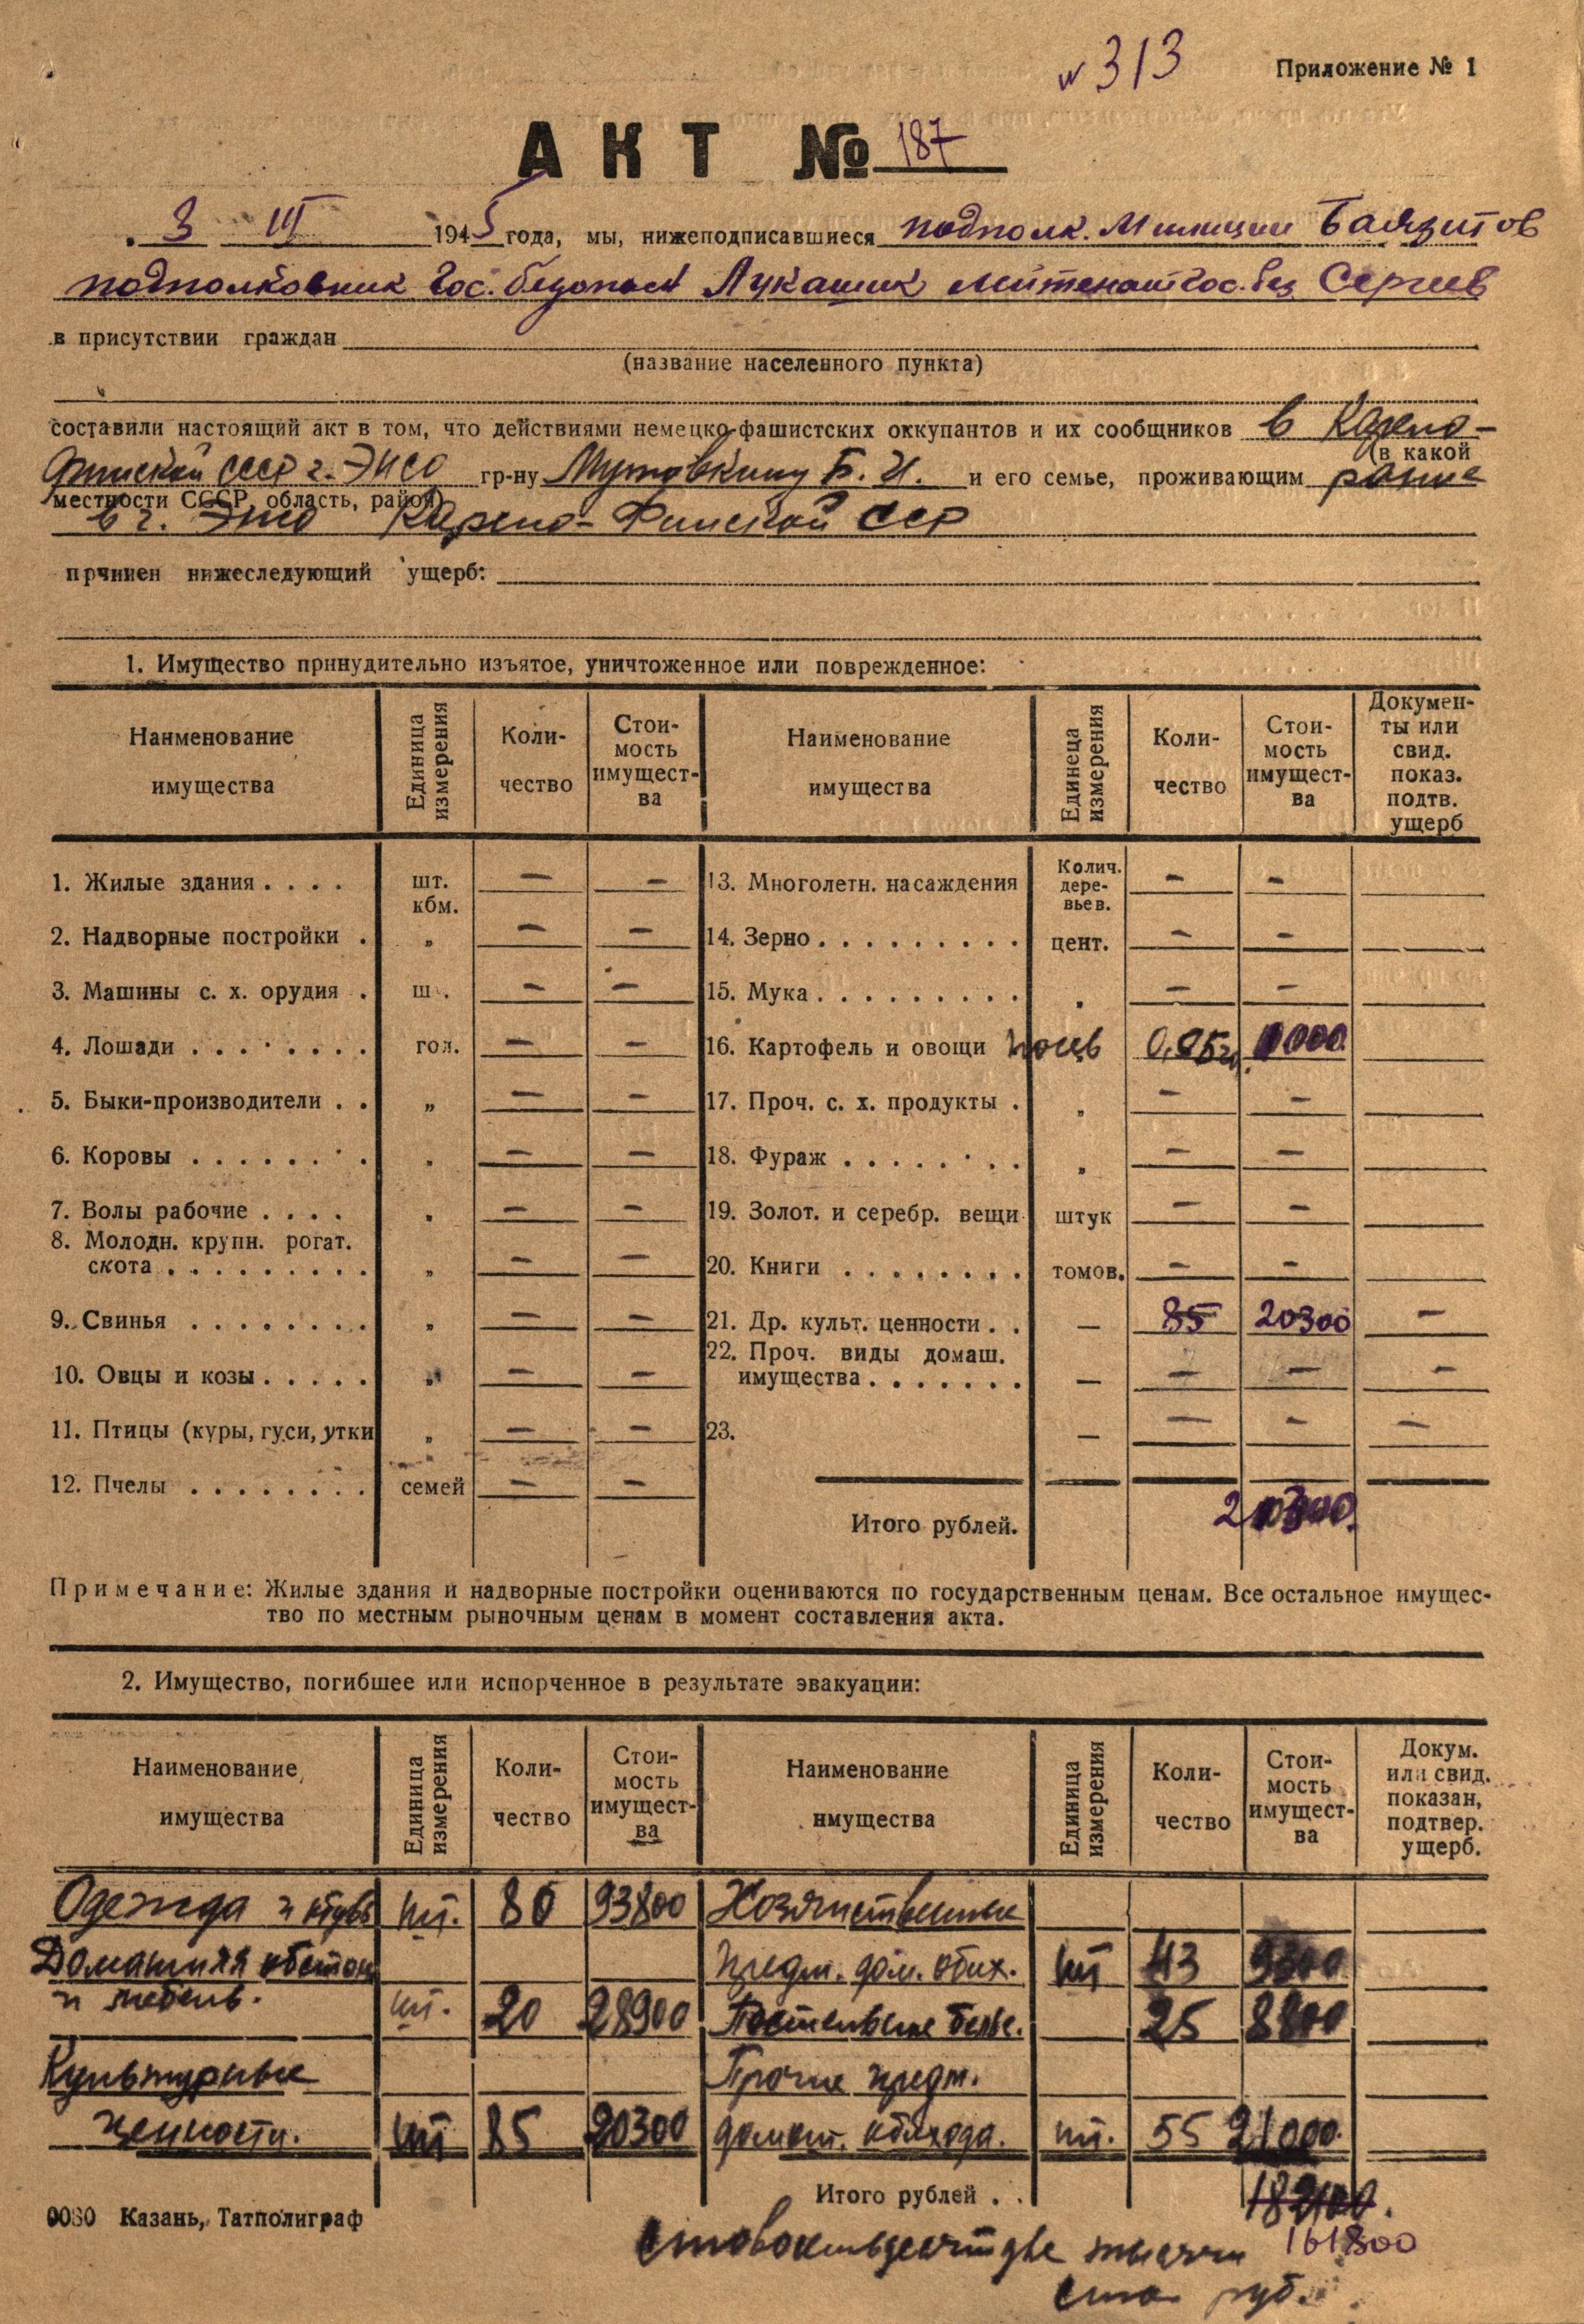 № 313
Приложение № 1
АКТ № 187
„ 3 III 1945 года, мы, нижеподписавшиеся подполк. Милиции Баязитов
подполковник Гос. безопасн Лукашик лейтенант Гос. без Сергеев
в присутствии граждан
(название населенного пункта)
составили настоящий акт в том, что действиями немецко-фашистских оккупантов и их сообщников в Карело-
(в какой
Финской ССР г. Энсо гр-ну Мутовкину Б. И. и его семье, проживающим ранее
местности СССР, область, район)
в г. Энсо Карело-Финской ССР
причинен нижеследующий ущерб:
1. Имущество принудительно изъятое, уничтоженное или поврежденное:
Наименование имущества Единица измерения Количество Стоимость имущества Наименование имущества Единеца измерения Количество Стоимость имущества Документы или свид. показ. подтв. ущерб
1. Жилые здания . . . . шт. кбм. — — 13. Многолетн. насаждения Колич. деревьев. — —
2. Надворные постройки . „ — — 14. Зерно . . . . . . . . . цент. — —
3. Машины с. х. орудия . ш . — — 15. Мука . . . . . . . . . „ — —
4. Лошади . . . . . . . . гол. — — 16. Картофель и овощи 1000
5. Быки-производители . . „ — — 17. Проч. с. х. продукты . „ — —
6. Коровы . . . . . . . . „ — — 18. Фураж . . . . . . . „ — —
7. Волы рабочие . . . . „ — — 19. Золот. и серебр. вещи штук — —
8. Молодн. крупн. рогат.
скота . . . . . . . . . „ — — 20. Книги . . . . . . . . томов. — —
9. Свинья . . . . . . . . „ — — 21. Др. культ. ценности . . — 85 20300 —
22. Проч. виды домаш.
10. Овцы и козы . . . . . „ — — имущества . . . . . . . — — — —
11. Птицы (куры, гуси, утки „ — — 23. — — — —
12. Пчелы . . . . . . . . семей — —
Итого рублей.
Примечание: Жилые здания и надворные постройки оцениваются по государственным ценам. Все остальное имущес-
тво по местным рыночным ценам в момент составления акта.
2. Имущество, погибшее или испорченное в результате эвакуации:
Наименование имущества Единица измерения Количество Стоимость имущества Наименование имущества Единица измерения Количество Стоимость имущества Докум. или свид. показан, подтвер. ущерб.
Одежда и обувь шт. 80 93800 Хозяйственные
Домашняя обстан предм. дом. обих. шт 43 9300
и мебель. шт. 20 28900 Постельное белье. 25 8800
Культурные Прочие предм.
ценности. шт 85 20300 домаш. обихода. шт. 55 21000
Итого рублей . . 182100.
0030 Казань, Татполиграф
161800
стовосемьдесят две тысячи
сто руб.